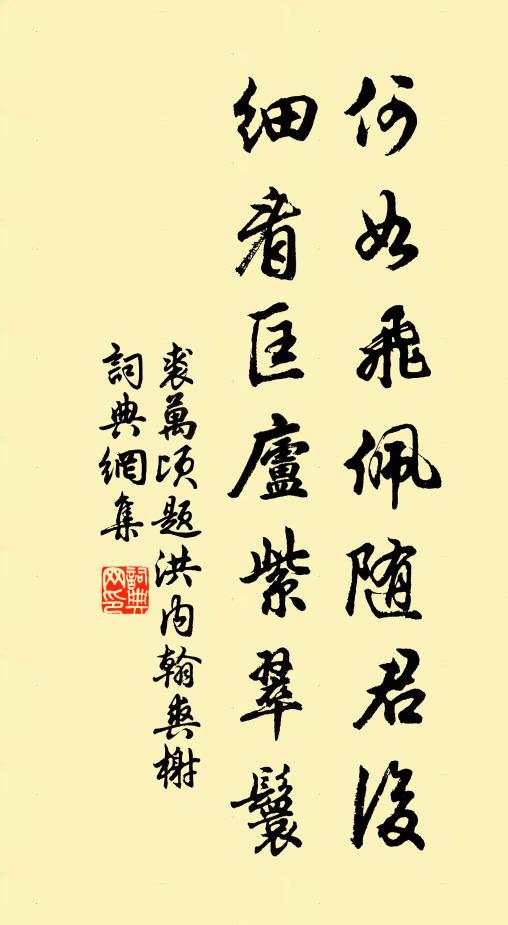 何如飛佩随君後
細看匡廬紫翠鬟
裘萬頃題洪内翰爽榭
詞典網集
詞典網印